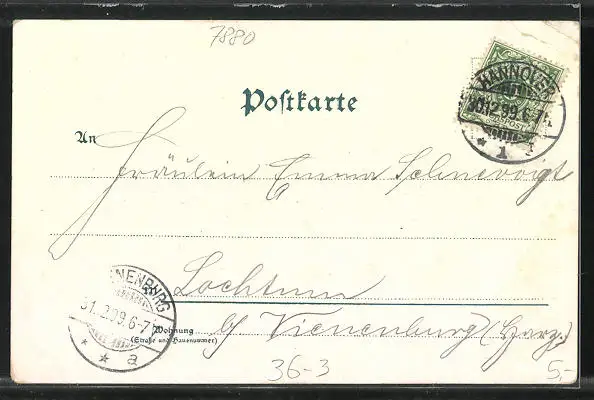 7880
HANNOVER
30.12.99.6-7
1
Postkarte
An
Fräulein Emma Schnevoigt
Lochtum
b/ Vienenburg (Harz.)
VIENENBURG
31.12.99.6-7
a
Wohnung
(Straße und Hausnummer)
36-3
5,-